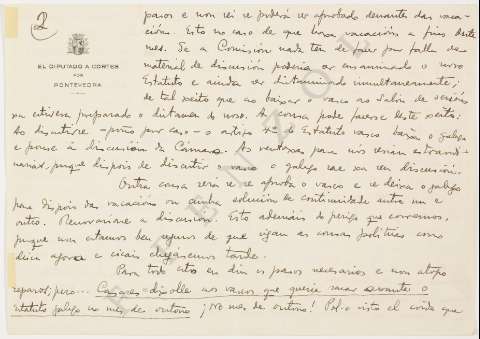 2
pasos e non sei se poderá ser aprobado denantes das vaca-
cións. Esto no caso de que haxa vacacións a fins deste
mes. Se a Comisión nada ten de facer por falla de
material de discusión poderia ser examinado o noso
EL DIPUTADO A CORTES
POR
PONTEVEDRA
Estatuto e ainda ser dictaminado simultaneamente;
de tal xeito que ao baixar o vasco ao Salón de sesións
xa estivera preparado o dictamen do noso. A cousa pode facerse deste xeito:
Ao discutirse —poño por caso— o artigo 1º do Estatuto vasco o galego
e pasase á discusión da Cámara. As ventaxas para nós serian extraordi-
narias, porque dispois de discutir o vasco o galego sae sin discusión.
Outra cousa será se se aproba o vasco e se deixa o galego
para dispois das vacacións ou ainda solución de continuidade entre un e
outro. Renovariase a discusión. Esto ademais do perigo que corremos,
porque non estamos ben seguros de que sigan as cousas politicas como
deica agora e cicais chegásemos tarde.
Para todo esto eu din os pasos necesarios e non atopo
reparos; pero... Casares díxolle aos vascos que queria sacar o
estatuto galego no mes de outono ¡no mes de outono! Pol-o visto el coida que